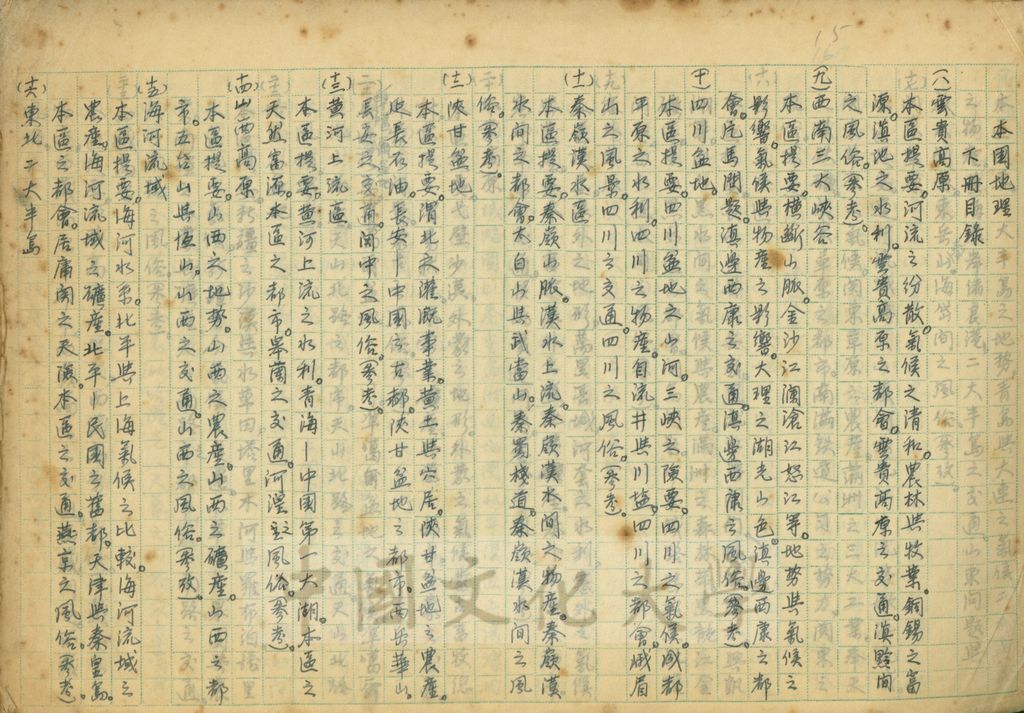 15
本國地理
下冊目錄
(八)雲貴高原
本區提要。河流之紛散。氣候之清和。農林與牧業。銅錫之富
源。滇池之水利。雲貴高原之都會。雲貴高原之交通。滇黔間
之風俗。(參考)。
(九)西南三大峽谷
本區提要。橫斷山脈。金沙江瀾滄江怒江等地勢與氣候之
影響。氣候與物產之影響。大理之湖光山色。滇邊西康之都
會。片馬問題。滇邊西康之交通。滇邊西康之風俗。(參考)。
(十)四川盆地
本區提要。四川盆地之山河。三峽之險要。四川之氣候。成都
平原之水利。四川之物產。自流井與川塩。四川之都會。峨眉
山之風景。四川之交通。四川之風俗。(參考)。
(十一)秦嶺漢水區
本區提要。秦嶺山脈。漢水上流。秦嶺漢水間之物產。秦嶺漢
水間之都會。太白山與武當山。秦蜀棧道。秦嶺漢水間之風
俗。(參考)。
(十二)陝甘盆地
本區提要。渭北之灌溉事業。黃土與穴居。陝甘盆地之農產。
延長石油。長安——中國之古都。陝甘盆地之都市。西岳華山。
長安之交通。關中之風俗。(參考)。
(十三)黃河上流區
本區提要。黃河上流之水利。青海—中國第一大湖。本區之
天然富源。本區之都市。皋蘭之交通。河湟之風俗。(參考)。
(十四)山西高原
本區提要。山西之地勢。山西之農產。山西之礦產。山西之都
市。五台山與恒山。山西之交通。山西之風俗。(參攷)。
(十五)海河流域
本區提要。海河水系。北平與上海氣候之比較。海河流域之
農產。海河流域之礦產。北平——民國之舊都。天津與秦皇島。
本區之都會。居庸關之天險。本區之交通。燕京之風俗。(參考)。
(十六)東北二大半島
中國文化大學